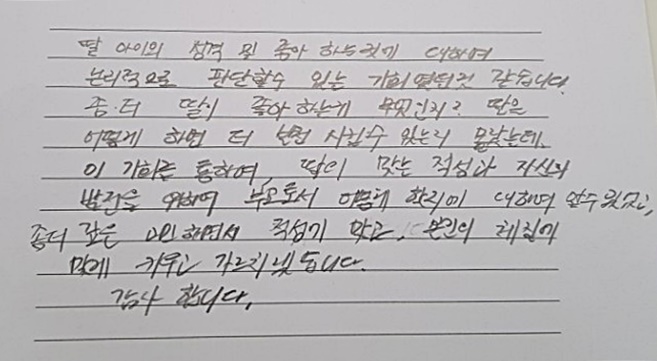 딸 아이의 성격 및 좋아 하는것에 대하여
논리적으로 판단할수 있는 기회였던것 같습니다.
좀.더 딸이 좋아하는게 무엇인지? 딸은
어떻게 하면 더 발전 시킬수 있는지 몰랐는데.
이 기회를 통하여, 딸의 맞는 적성과 자신의
발전을 위하여 부모로서 어떻게 할지에 대하여 알수있었고,
좀더 깊은 고민하면서 적성에 맞고, 본인의 체질에
맞게 키우고 가르치겠습니다.
감사 합니다.